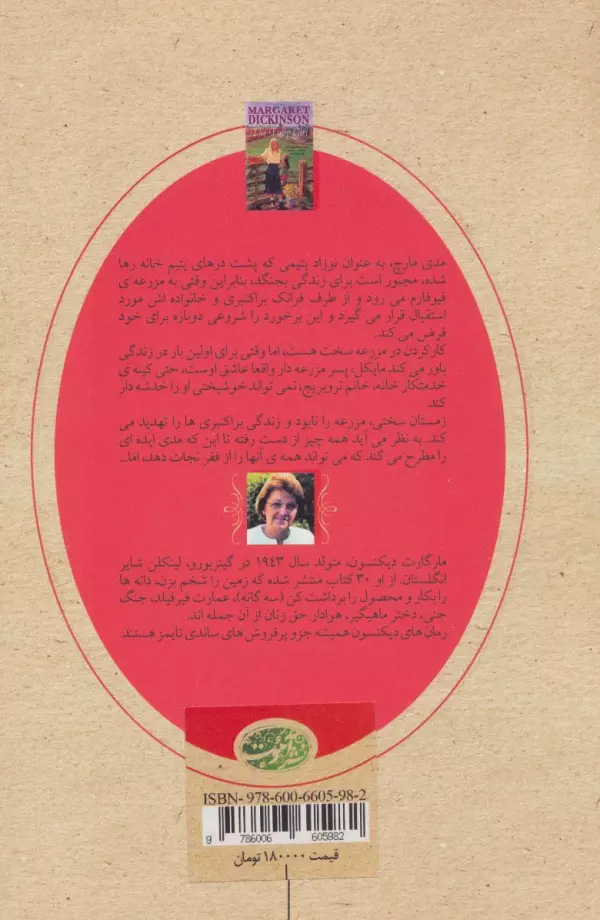 MARGARET
DICKINSON
The Tulip Girl
مدی مارچ، به عنوان نوزاد یتیمی که پشت درهای یتیم خانه رها
شده، مجبور است برای زندگی بجنگد، بنابراین وقتی به مزرعه ی
فیوفارم می رود و از طرف فرانک براکنبری و خانواده اش مورد
استقبال قرار می گیرد و این برخورد را شروعی دوباره برای خود
فرض می کند.
کارکردن در مزرعه سخت هست، اما وقتی برای اولین بار در زندگی
باور می کند مایکل، پسر مزرعه دار واقعا عاشق اوست، حتی کینه ی
خدمتکار خانه، خانم ترویریچ، نمی تواند خوشبختی او را خدشه دار
کند.
زمستان سختی، مزرعه را نابود و زندگی براکنبری ها را تهدید می
کند. به نظر می آید همه چیز از دست رفته تا این که مدی ایده ای
را مطرح می کند که می تواند همه ی آنها را از فقر نجات دهد، اما...
مارگارت دیکنسون، متولد سال ۱۹۴۳ در گینزبورو، لینکلن شایر
انگلستان. از او ۳۰ کتاب منتشر شده که زمین را شخم بزن، دانه ها
را بکار و محصول را برداشت کن (سه گانه)، عمارت فیرفیلد، جنگ
جنی، دختر ماهیگیر، هوادار حق زنان از آن جمله اند.
رمان های دیکنسون همیشه جزو پرفروش های ساندی تایمز هستند.
ISBN- 978-600-6605-98-2
9 786006 605982
قیمت ۱۸۰۰۰۰ تومان